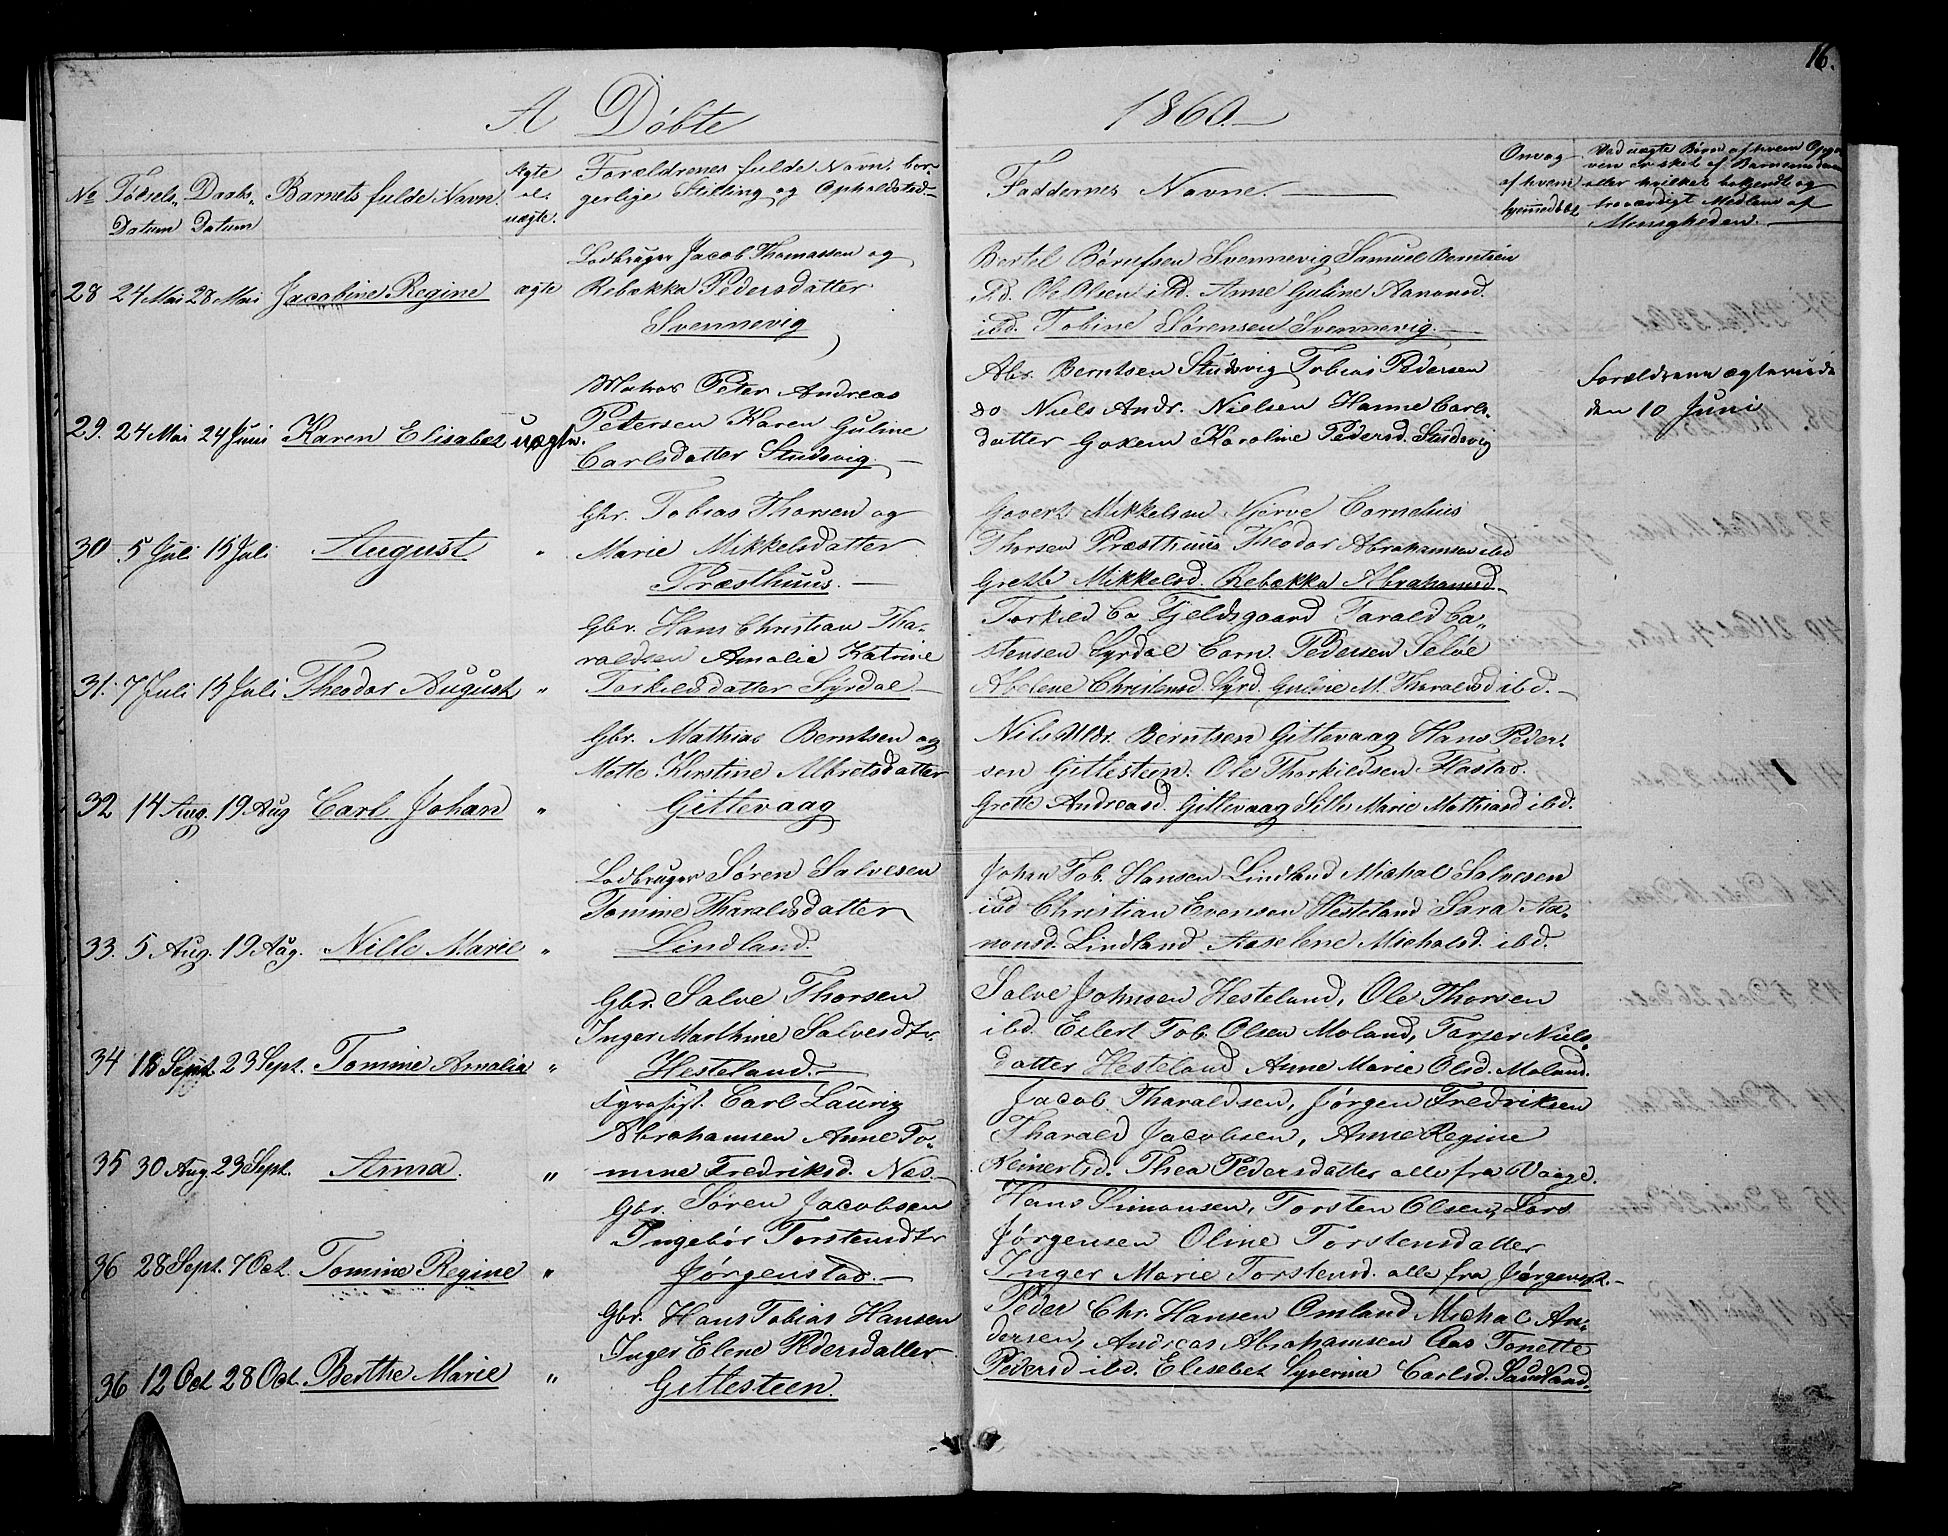 16.
A Döbte 1860.
No Födsels- Daabs- Barnets fulde Navn. Ægte Forældrenes fulde Navn. bor- Faddernes Navne.
Datum Datum el. uægte. gerlige Stilling og Opholdsted
Om og af hvem hjemmedøbt
Ved uægte Børn af hvem Opgi-
ven er sket af Barnemoderen
eller hvilket bekjendt og
troværdigt Medlem af
Menigheden.
28 24 Mai 28 Mai Jacobine Regine ægte
Lodbruger Jacob Thomassen og
Rebækka Pedersdatter
Svennevig
Bertel Svennevig Samuel Berntsen
ibd. Ole Olsen ibd. Anne Guline Aanonsd.
ibd. Tobine Sörensen Svennevig.
29. 24 Mai 24 Juni Karen Elisabet uægte.
Matros Peter Andreas
Petersen Karen Guline
Carlsdatter Studsvig.
Abr. Berntsen Studsvig Tobias Pedersen
do Niels Andr. Nielsen Hanne Carls-
datter Gokem Karoline Pedersd. Studsvig
Forældrene ægteviede
den 10 Juni
30 5 Juli 15 Juli August "
Gbr. Tobias Thorsen og
Marie Mikkelsdatter
Præsthuus.
Govert Mikkelsen Njerve Cornelius
Thorsen Præsthuus Theodor Abrahamsen ibd
Grethe Mikkelsd. Rebækka Abrahamsd.
31. 7 Juli 15 Juli Theodor August "
Gbr. Hans Christian Tha-
raldsen Amalie Katrine
Torkildsdatter Syrdal.
Torkild Ca Fjeldsgaard Tarald Ca-
stensen Syrdal Corn. Pedersen Selöe
Abelene Christensd. Syrd. Guline M. Tharalsd ibd.
32 14 Aug. 19 Aug Carl Johan "
Gbr. Mathias Berntsen og
Mette Kirstine Albretsdatter
Gittevaag
Nils Berntsen Gittevaag Hans Peder-
sen Gittesteen. Ole Thorkildsen Hastad.
Grethe Andreasd. Gittevaag Sille Marie Mathiasd ibd.
33. 5 Aug. 19 Aug. Nille Marie "
Lodbruger Sören Salvesen
Tomine Tharalsdatter
Lindland.
Johan Tob. Hansen Lindland Michal Salvesen
ibd Christian Evensen Hesteland Sara Aa-
nonsd. Lindland Aaselene Michalsd. ibd.
34 18 Sept. 23 Sept. Tomine Amalia "
Gbr. Salve Thorsen
Inger Marthine Salvesdtr.
Hesteland.
Salve Johnsen Hesteland, Ole Thorsen
ibd. Eilert Tob. Olsen Moland, Tarjer Niels-
datter Hesteland Anne Marie Olsd. Moland.
35 30 Aug. 23 Sept. Anna. "
Fyrvogt. Carl Lauriz
Abrahamsen Anne To-
mine Fredriksd. Næs.
Jacob Tharaldsen, Jörgen Fredriksen
Tharald Jacobsen, Anne Regine
Reinertsd. Thea Pedersdatter alle fra Vaage.
36 28 Sept. 7 Oct. Tomine Regine "
Gbr. Sören Jacobsen
Ingebör Torstensdtr
Jörgenstad.
Hans Simonsen, Torsten Olsen, Lars
Jörgensen Oline Torstensdatter
Inger Marie Torstensd. alle fra Jörgenst.
36 12 Oct 28 Oct. Berthe Marie "
Gbr. Hans Tobias Hansen
Inger Elene Pedersdatter
Gittesteen.
Peder Chr. Hansen Omland Michal An-
dersen, Andreas Abrahamsen Aas Tonette
Pedersd ibd. Elisebet Syverina Carlsd.